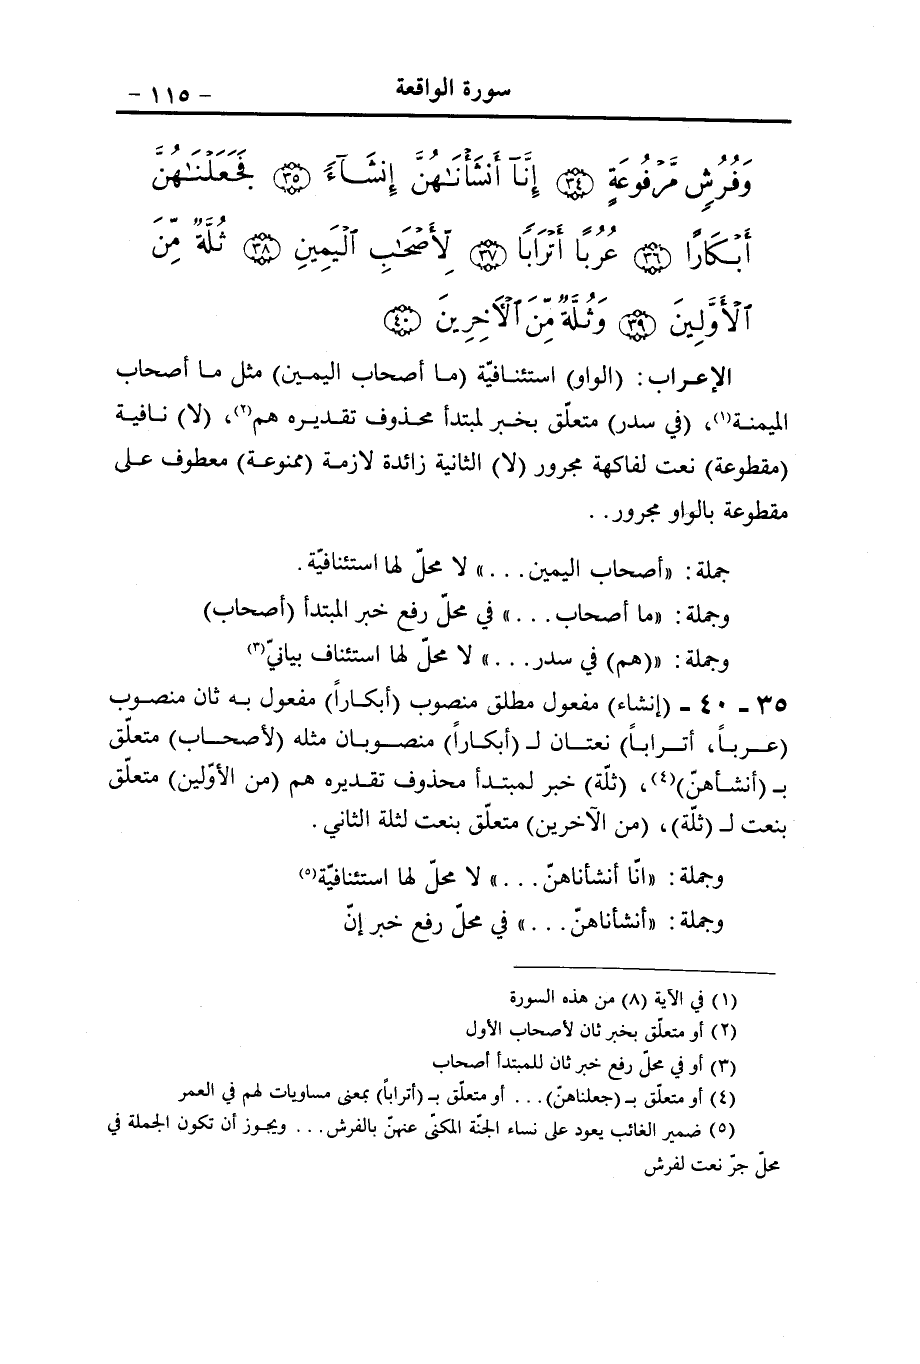 سورة الواقعة - ١١٥ -
وَفُرُشٍ مَّرْفُوعَةٍ ﴿٣٤﴾ إِنَّآ أَنشَأْنَٰهُنَّ إِنشَآءً ﴿٣٥﴾ فَجَعَلْنَٰهُنَّ
أَبْكَارًا ﴿٣٦﴾ عُرُبًا أَتْرَابًا ﴿٣٧﴾ لِّأَصْحَٰبِ ٱلْيَمِينِ ﴿٣٨﴾ ثُلَّةٌ مِّنَ
ٱلْأَوَّلِينَ ﴿٣٩﴾ وَثُلَّةٌ مِّنَ ٱلْآخِرِينَ ﴿٤٠﴾
الإعراب: (الواو) استئنافيّة (ما أصحاب اليمين) مثل ما أصحاب
الميمنة(١)، (في سدر) متعلّق بخبر لمبتدأ محذوف تقديره هم(٢)، (لا) نافية
(مقطوعة) نعت لفاكهة مجرور (لا) الثانية زائدة لازمة (ممنوعة) معطوف على
مقطوعة بالواو مجرور..
جملة: «أصحاب اليمين...» لا محلّ لها استئنافيّة.
وجملة: «ما أصحاب...» في محلّ رفع خبر المبتدأ (أصحاب)
وجملة: «(هم) في سدر...» لا محلّ لها استئناف بيانيّ(٣)
٣٥ - ٤٠ - (إنشاء) مفعول مطلق منصوب (أبكاراً) مفعول به ثان منصوب
(عرباً، أتراباً) نعتان لـ (أبكاراً) منصوبان مثله (لأصحاب) متعلّق
بـ (أنشأهنّ)(٤)، (ثلّة) خبر لمبتدأ محذوف تقديره هم (من الأوّلين) متعلّق
بنعت لـ (ثلّة)، (من الآخرين) متعلّق بنعت لثلة الثاني.
وجملة: «انّا أنشأناهنّ...» لا محلّ لها استئنافيّة(٥)
وجملة: «أنشأناهنّ...» في محلّ رفع خبر إنّ
(١) في الآية (٨) من هذه السورة
(٢) أو متعلّق بخبر ثان لأصحاب الأول
(٣) أو في محلّ رفع خبر ثان للمبتدأ أصحاب
(٤) أو متعلّق بـ (جعلناهنّ)... أو متعلّق بـ (أتراباً) بمعنى مساويات لهم في العمر
(٥) ضمير الغائب يعود على نساء الجنّة المكنّى عنهنّ بالفرش... ويجوز أن تكون الجملة في
محلّ جرّ نعت لفرش